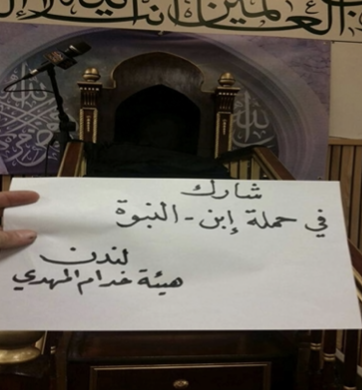 العالمين
شارك
في حملة إبن - النبوة
لندن
هيئة خدام المهدي